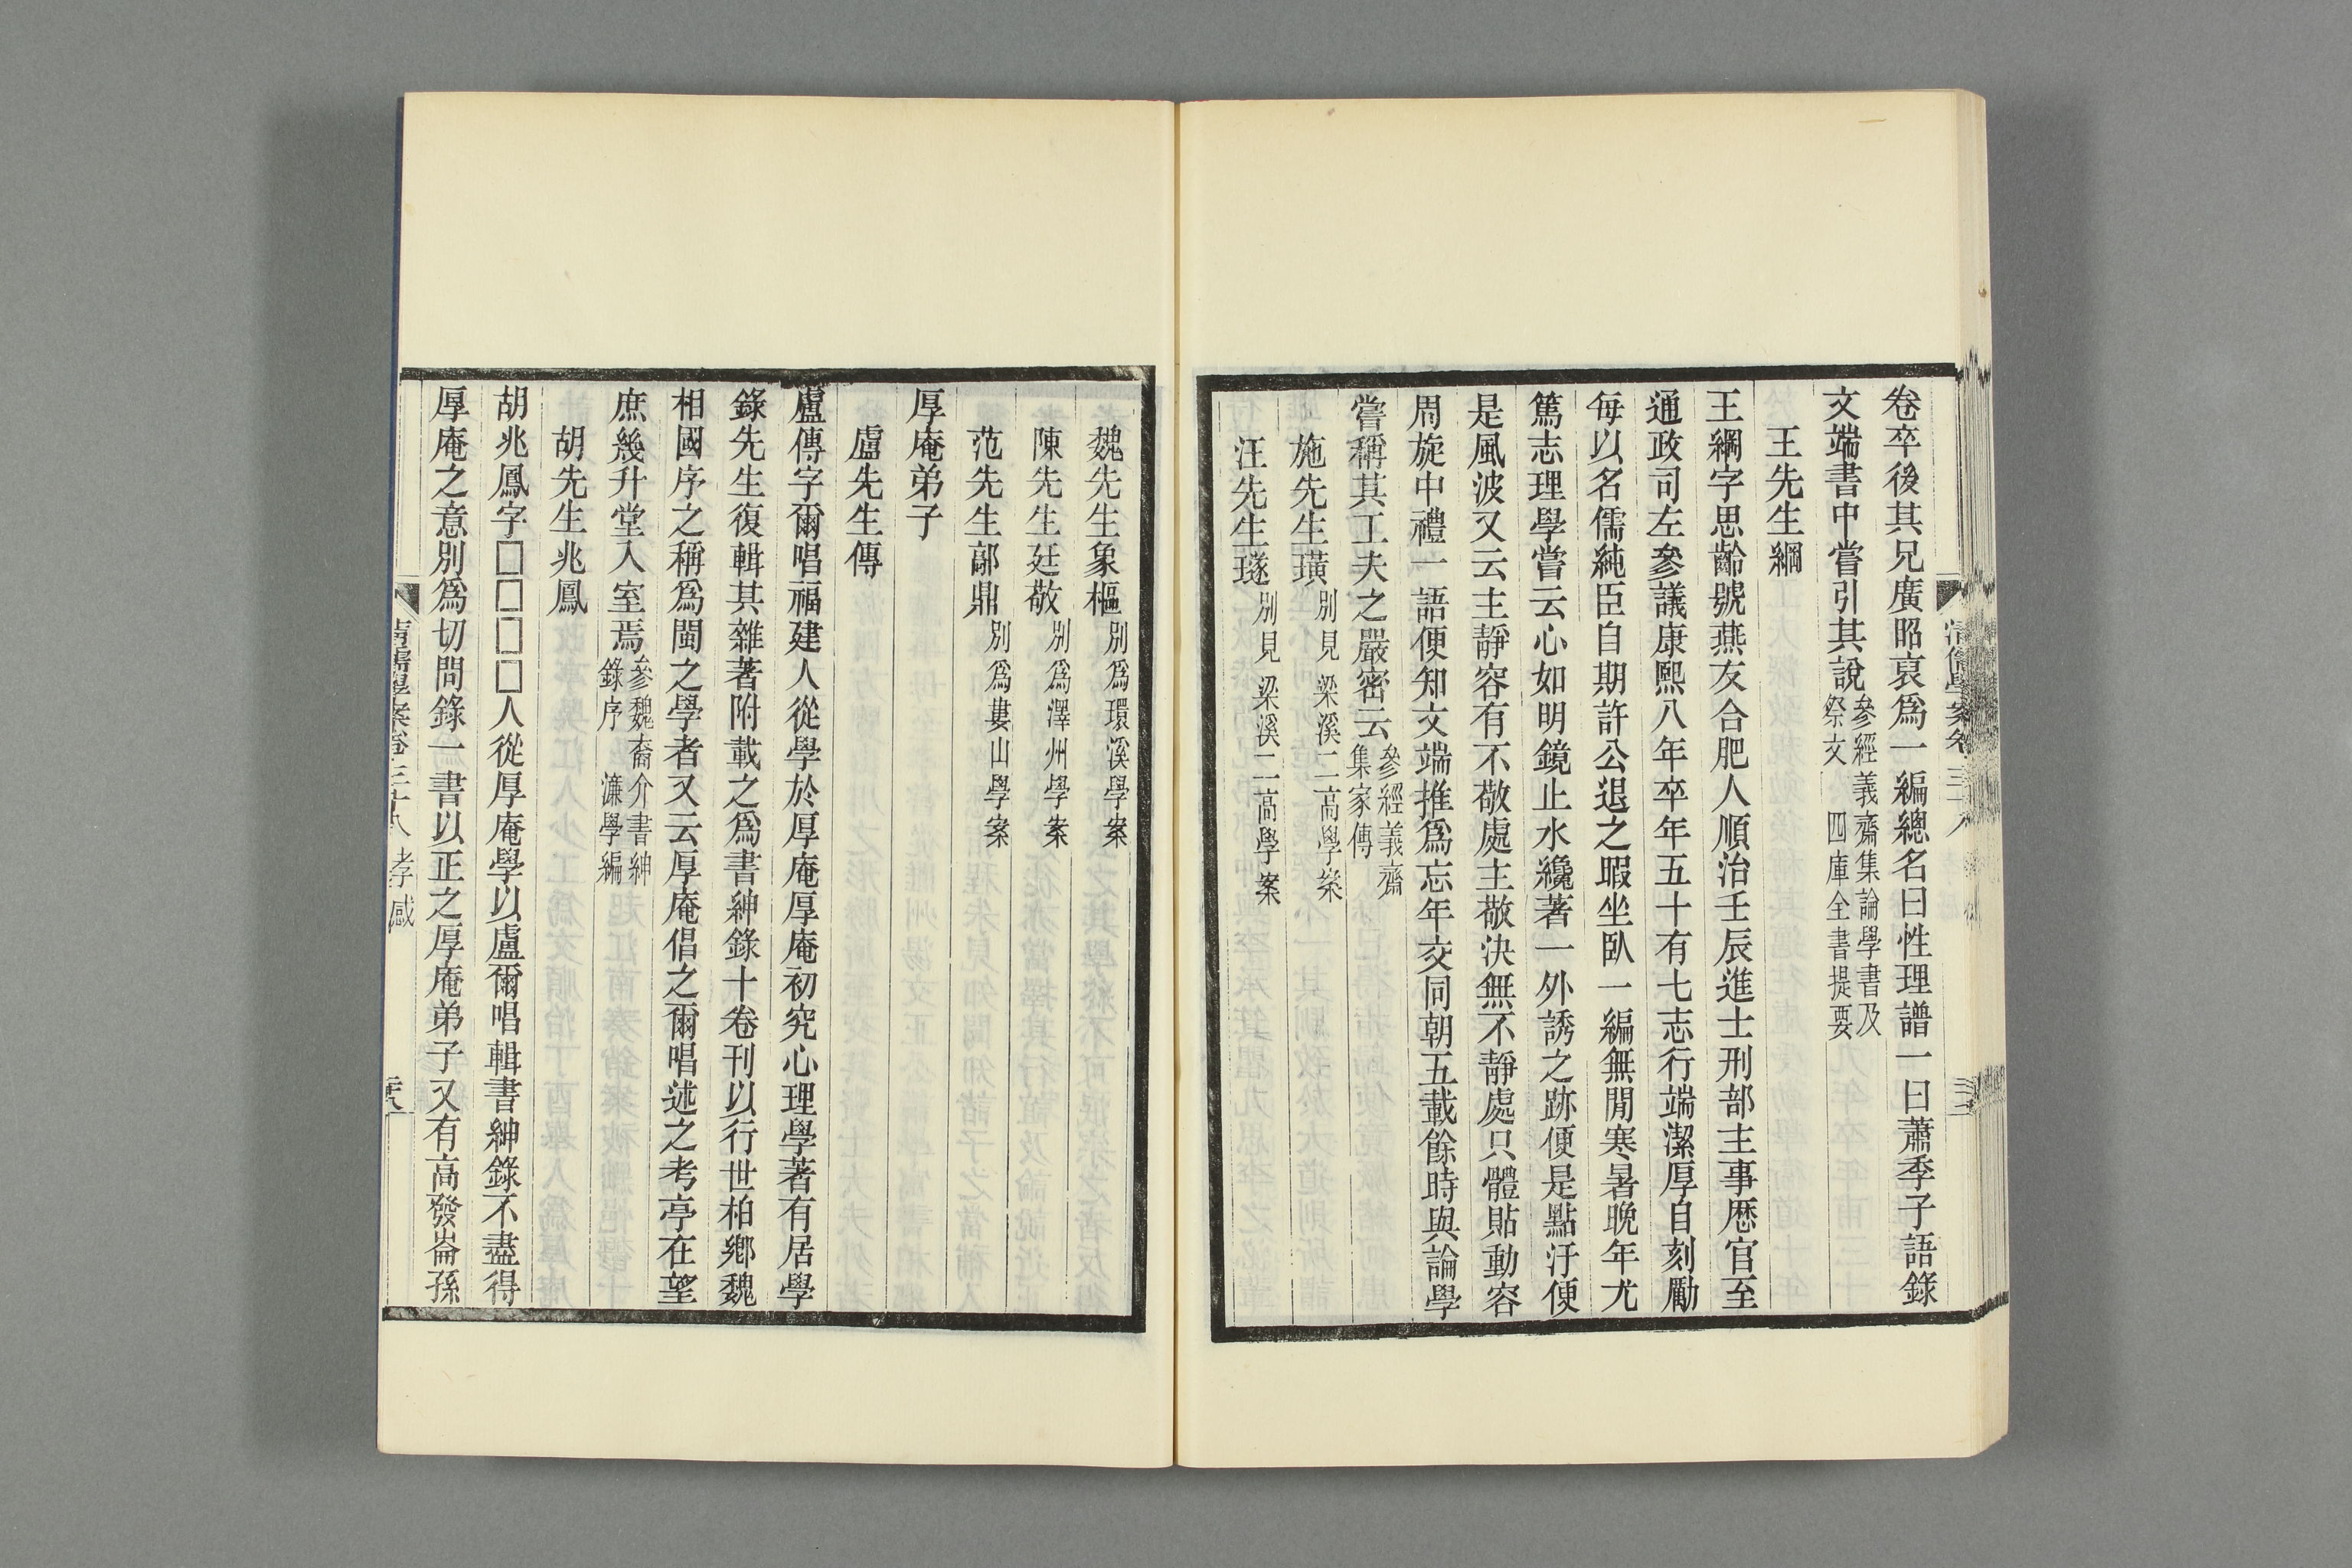 卷卒後其兄廣昭裒爲一編總名曰性理譜一曰蕭季子語錄
文端書中嘗引其說參經義齋集論學書及祭文 四庫全書提要
王先生綱
王綱字思齡號燕友合肥人順治壬辰進士刑部主事歷官至
通政司左參議康熙八年卒年五十有七志行端潔厚自刻勵
每以名儒純臣自期許公退之暇坐臥一編無閒寒暑晚年尤
篤志理學嘗云心如明鏡止水纔著一外誘之跡便是點汙便
是風波又云主靜容有不敬處主敬決無不靜處只體貼動容
周旋中禮一語便知文端推爲忘年交同朝五載餘時與論學
嘗稱其工夫之嚴密云參經義齋集家傳
施先生璜別見梁溪二高學案
汪先生璲別見梁溪二高學案
魏先生象樞別爲環溪學案
陳先生廷敬別爲澤州學案
范先生鄗鼎別爲婁山學案
厚庵弟子
盧先生傳
盧傳字爾唱福建人從學於厚庵厚庵初究心理學著有居學
錄先生復輯其雜著附載之爲書紳錄十卷刊以行世柏鄉魏
相國序之稱爲閩之學者又云厚庵倡之爾唱述之考亭在望
庶幾升堂入室焉參魏裔介書紳錄序 濂學編
胡先生兆鳳
胡兆鳳字□□□□人從厚庵學以盧爾唱輯書紳錄不盡得
厚庵之意別爲切問錄一書以正之厚庵弟子又有高發崙孫
清儒學案卷三十八 孝感